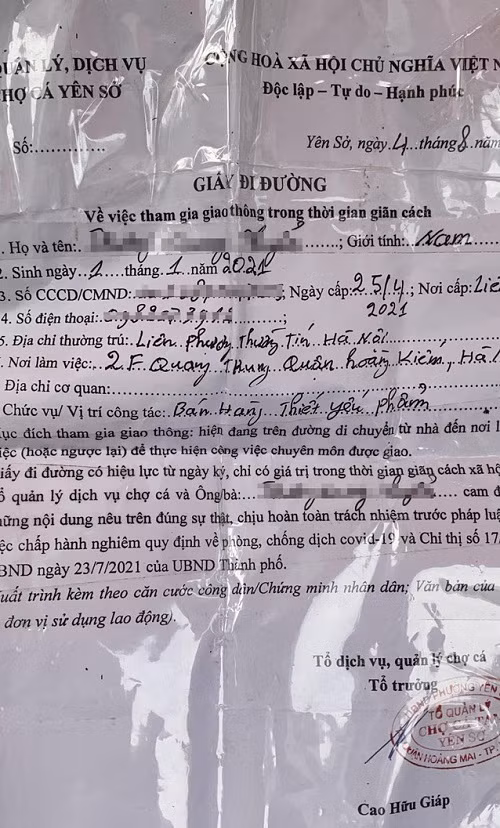 QUẢN LÝ, DỊCH VỤ
CỘNG HOÀ XÃ HỘI CHỦ NGHĨA VIỆT N
HỢ CÁ YÊN SỞ
Độc lập – Tự do – Hạnh phúc
Số:.............
Yên Sở, ngày 4 tháng 8 năm
GIẤY ĐI ĐƯỜNG
Về việc tham gia giao thông trong thời gian giãn cách
. Họ và tên: ......; Giới tính: Nam
2. Sinh ngày 1 tháng 1 năm 2021
3. Số CCCD/CMND: ; Ngày cấp: 25/4/2021; Nơi cấp: Liê
4. Số điện thoại:
5. Địa chỉ thường trú: Liên phương Thường Tín Hà Nội
. Nơi làm việc: 2.F. Quang Trung Quận hoàng Kiếm, Hà
Địa chỉ cơ quan:
Chức vụ/ Vị trí công tác: Bán Hàng Thiết yếu phẩm
ục đích tham gia giao thông: hiện đang trên đường di chuyển từ nhà đến nơi l
iệc (hoặc ngược lại) để thực hiện công việc chuyên môn được giao.
iấy đi đường có hiệu lực từ ngày ký, chỉ có giá trị trong thời gian giãn cách xã hộ
ổ quản lý dịch vụ chợ cá và Ông/bà: cam đ
ững nội dung nêu trên đúng sự thật, chịu hoàn toàn trách nhiệm trước pháp luậ
ệc chấp hành nghiêm quy định về phòng, chống dịch covid-19 và Chỉ thị số 17/
BND ngày 23/7/2021 của UBND Thành phố.
uất trình kèm theo căn cước công dân/Chứng minh nhân dân; Văn bản của
đơn vị sử dụng lao động).
Tổ dịch vụ, quản lý chợ cá
Tổ trưởng
PHƯỜNG YÊN
TỔ QUẢN LÝ
CHỢ CÁ
YÊN SỞ
QUẬN HOÀNG MAI - TP
Cao Hữu Giáp